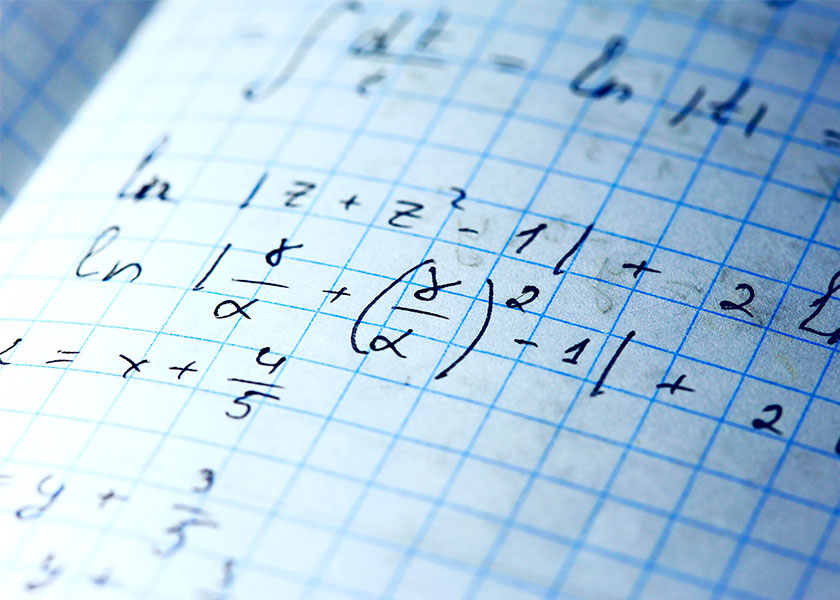 = ∫ dt/t = ln |t| =
ln |z + z² - 1| + 2 l
ln |γ/α + (γ/α)² - 1| + 2
= x + 4/5
= y + 3/5
y +